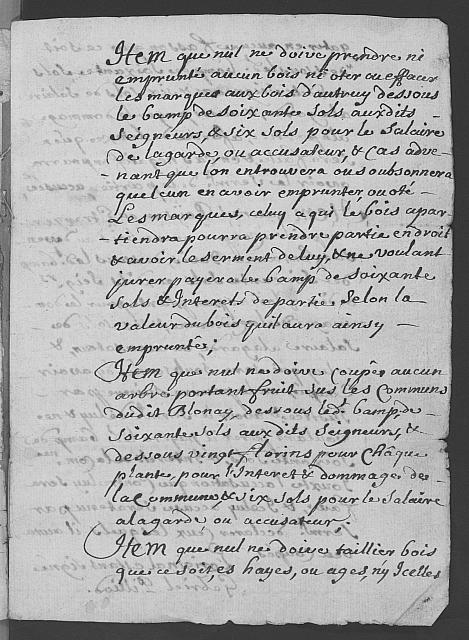 Item que nul ne doive prendre ni
emprunté aucun bois ni oter ou effacer
les marques aux bois d'autruy dessous
le bamp de soixante sols auxdits
Seigneurs, & six sols pour le salaire
de la garde, ou accusateur, & Cas adve-
-nant que l'on en trouvera ou soubsonnera
quelcun en avoir emprunter ou oté
Les marques, celuy a qui le bois apar-
-tiendra pourra prendre partie en droit
& avoir le serment de luy, & ne voulant
jurer payera le bamp de soixante
sols & Interets de partie Selon la
valeur du bois quil aura ainsy
emprunté;
Item que nul ne doive coupér aucun
arbre portant fruit sus les Communs
dudit Blonay dessous led. bamp de
soixante sols aux dits Seigneurs, &
dessous vingt florins pour Châque
plante, pour l'Interet & dommage de
la Commune & six sols pour le salaire
a la garde ou accusateur;
Item que nul ne doive taillier bois
que ce soit, es hayes, ou ages, ny Icelles